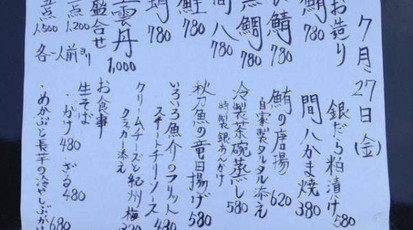 7月27日(金)
お造り
鯛 780
〆鯖 780
黒鯛 780
間八 780
780
雲丹 1,000
盛合せ
三点 1,200
五点 1,500
各一人前ヨリ
銀だら粕漬け 580
間八かま焼 380
鮪の唐揚 620
・自家製タルタル添え
冷製茶碗蒸し 580
・時製銀あんかけ
秋刀魚の竜田揚げ 580
いろいろ魚介のフリット 480
スイートチリソース
クリームチーズと紀州梅 320
クラッカー添え
お食事
生そば
・かけ 480
・ざる 480
・めかぶと長芋の冷しぶっかけ 680